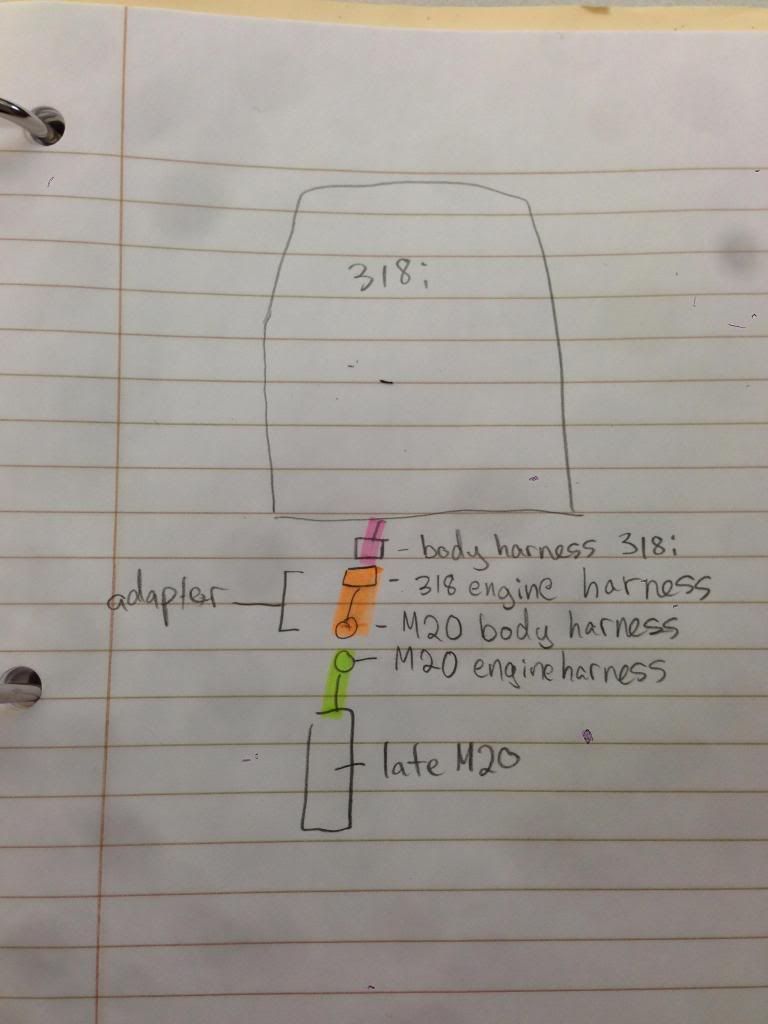 318i
- body harness 318i
- 318 engine harness
adapter
- M20 body harness
- M20 engine harness
- late M20